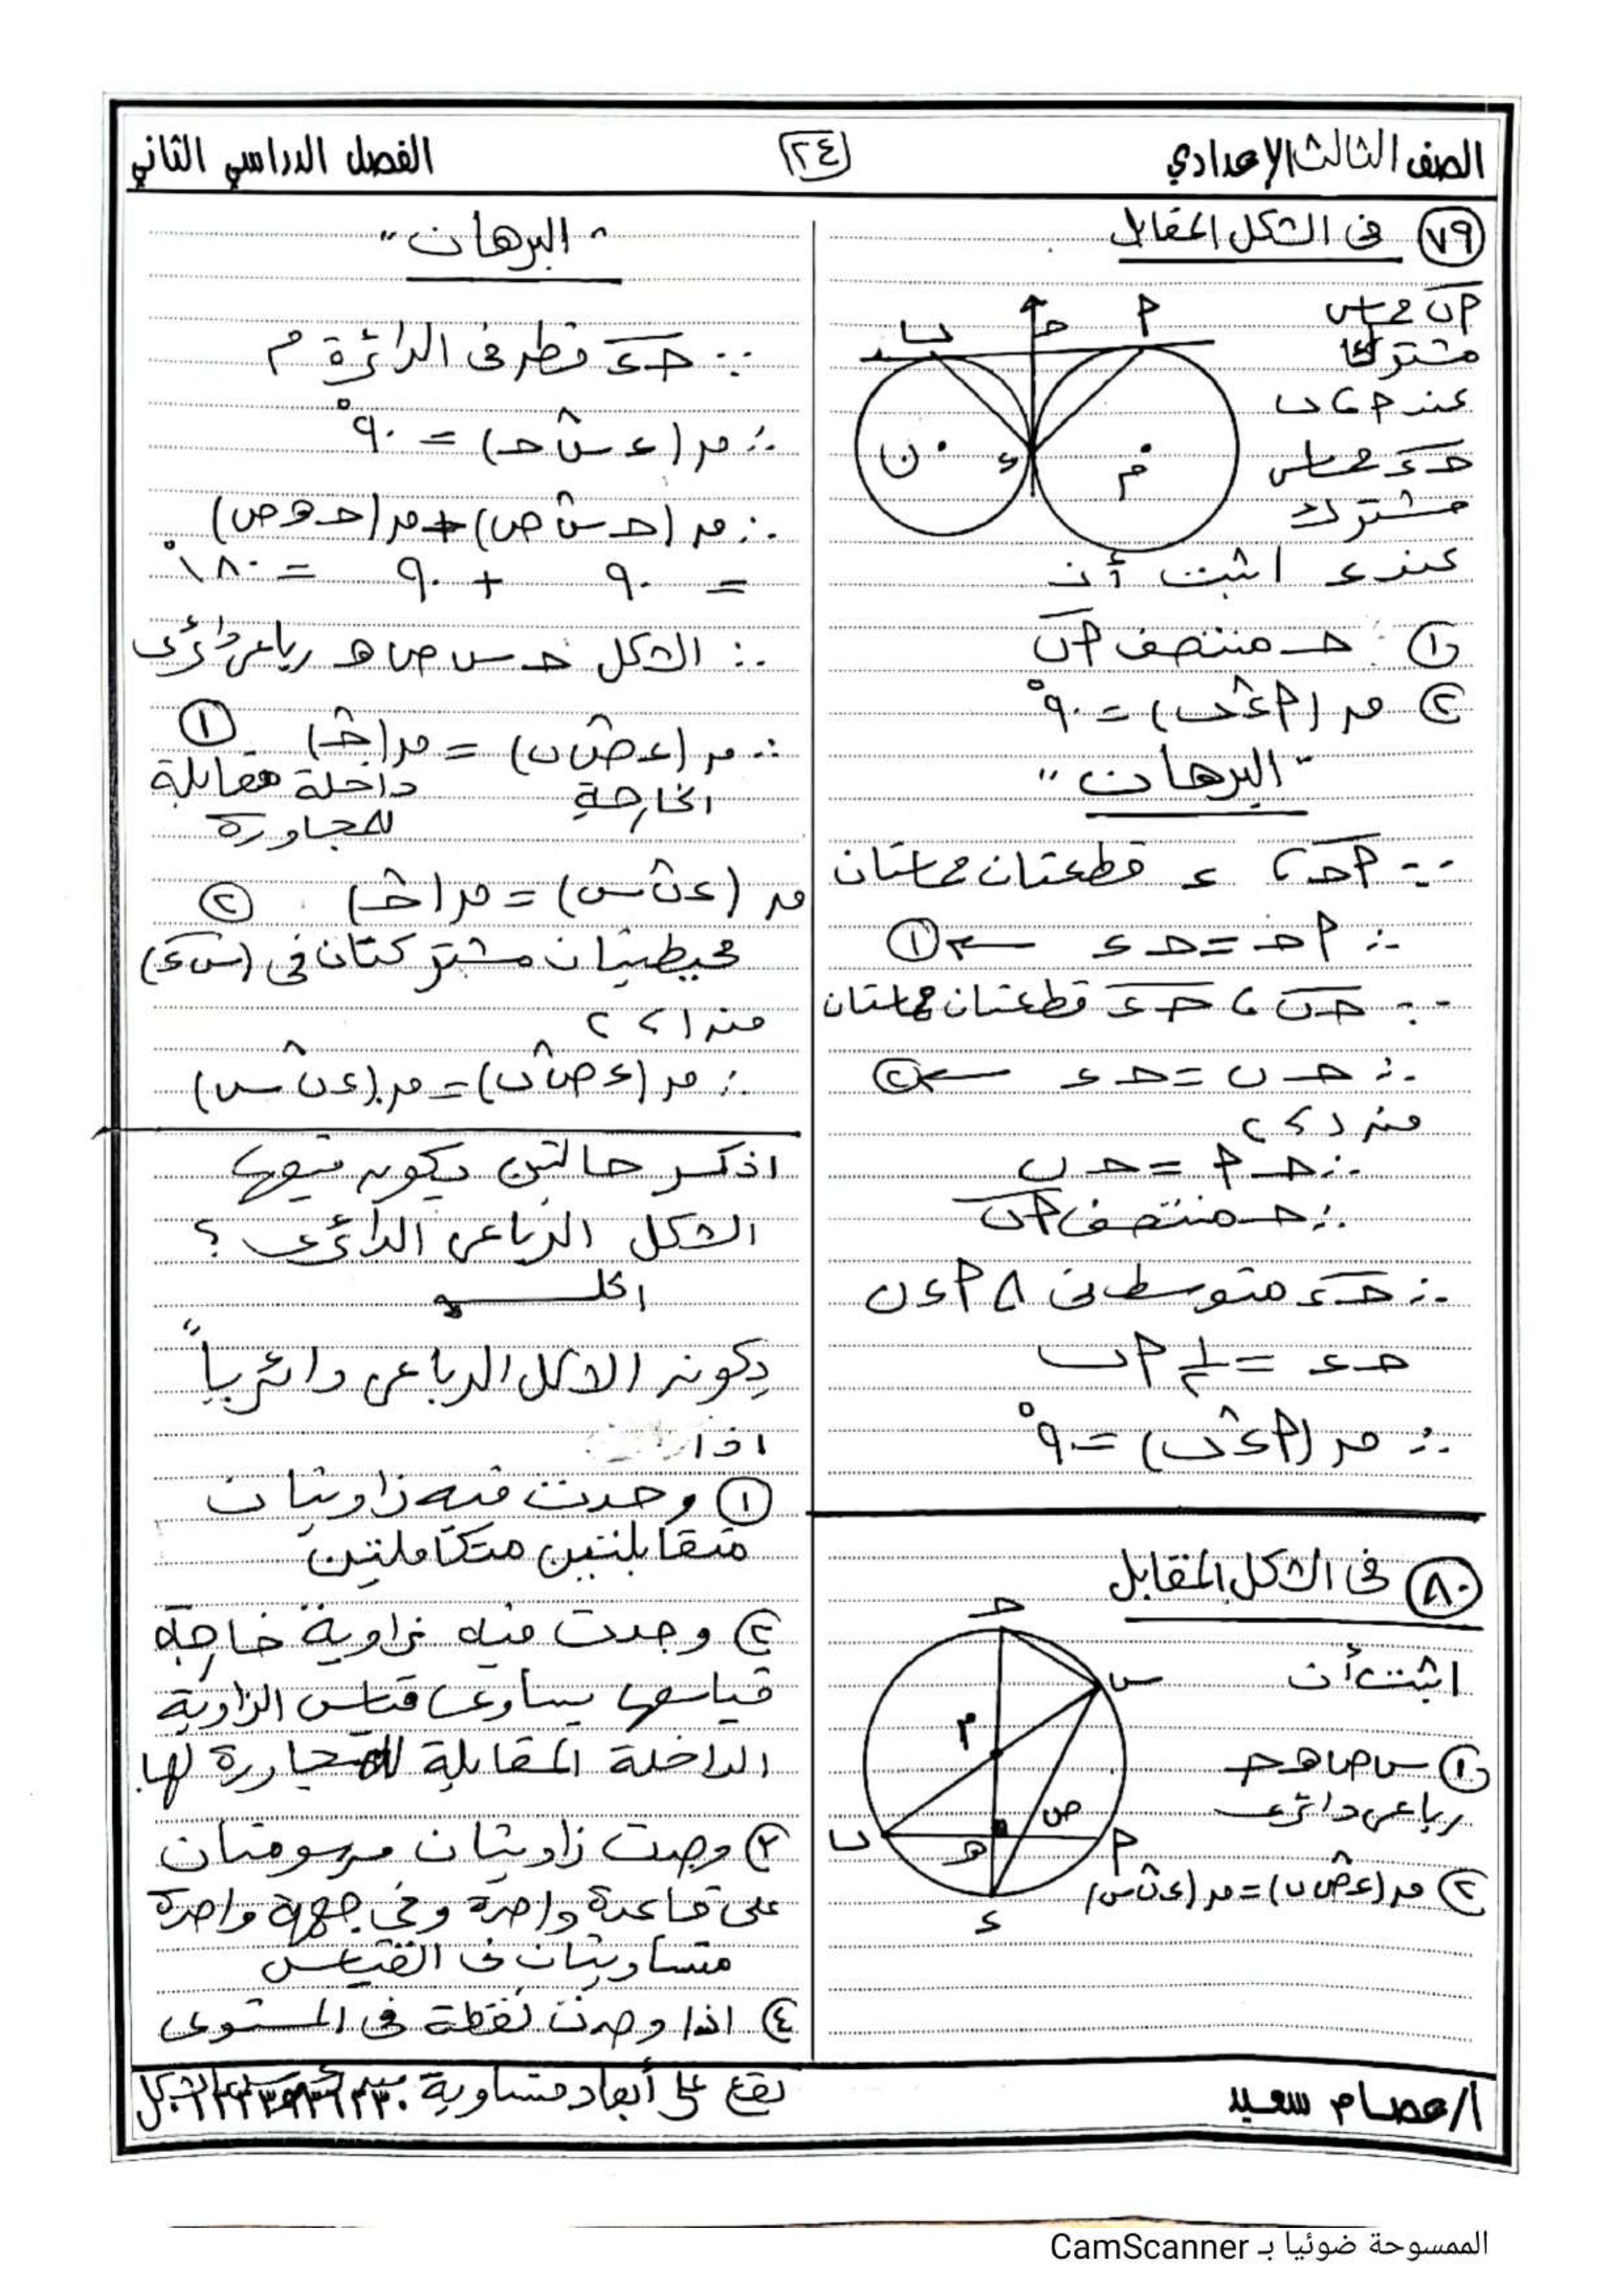 الصف الثالث الإعدادي
٢٤
الفصل الدراسي الثاني
٧٩ فى الشكل المقابل
أب مماس
مشترك
عند أ ، ب
حـ ء مماس
مشترك
عند ء اثبت أن
أ حـ ب
ء
م
ن
١ حـ منتصف أب
٢ ق (أ ء ب) = ٩٠°
"البرهان"
∵ أحـ ، ء قطعتان مماستان
∴ أحـ = حـ ء ← ١
∵ حـ ب ، حـ ء قطعتان مماستان
∴ حـ ب = حـ ء ← ٢
من ١ ، ٢
∴ حـ أ = حـ ب
∴ حـ منتصف أب
∴ حـ ء متوسط فى △ أ ء ب
حـ ء = ١/٢ أ ب
∴ ق (أ ء ب) = ٩٠°
٨٠ فى الشكل المقابل
اثبت أن
١ س ص هـ حـ
رباعى دائرى
٢ ق (ء ص ب) = ق (ء ب س)
حـ
س
م
ص
ب هـ أ
ء
"البرهان"
∵ حـ ء قطر فى الدائرة م
∴ ق (ء س حـ) = ٩٠°
∴ ق (حـ س ص) + ق (حـ هـ ص)
= ٩٠ + ٩٠ = ١٨٠°
∴ الشكل حـ س ص هـ رباعى دائرى
∴ ق (ء ص ب) = ق (حـ) ١
الخارجة داخلة مقابلة
للمجاورة
ق (ء ب س) = ق (حـ) ٢
محيطيتان مشتركتان فى (س ء)
من ١ ، ٢
∴ ق (ء ص ب) = ق (ء ب س)
اذكر حالتين يكون فيها
الشكل الرباعى الدائرى ؟
الحل
يكون الشكل الرباعى دائرياً
اذا
١ وجدت فيه زاويتان
متقابلتين متكاملتين
٢ وجدت فيه زاوية خارجة
قياسها يساوى قياس الزاوية
الداخلة المقابلة للمجاورة لها
٣ وجدت زاويتان مرسومتان
على قاعدة واحدة وفى جهة واحدة
متساويتان فى القياس
٤ اذا وجدت نقطة فى المستوى
تقع على أبعاد متساوية
أ/عصام سعيد
الممسوحة ضوئيا بـ CamScanner